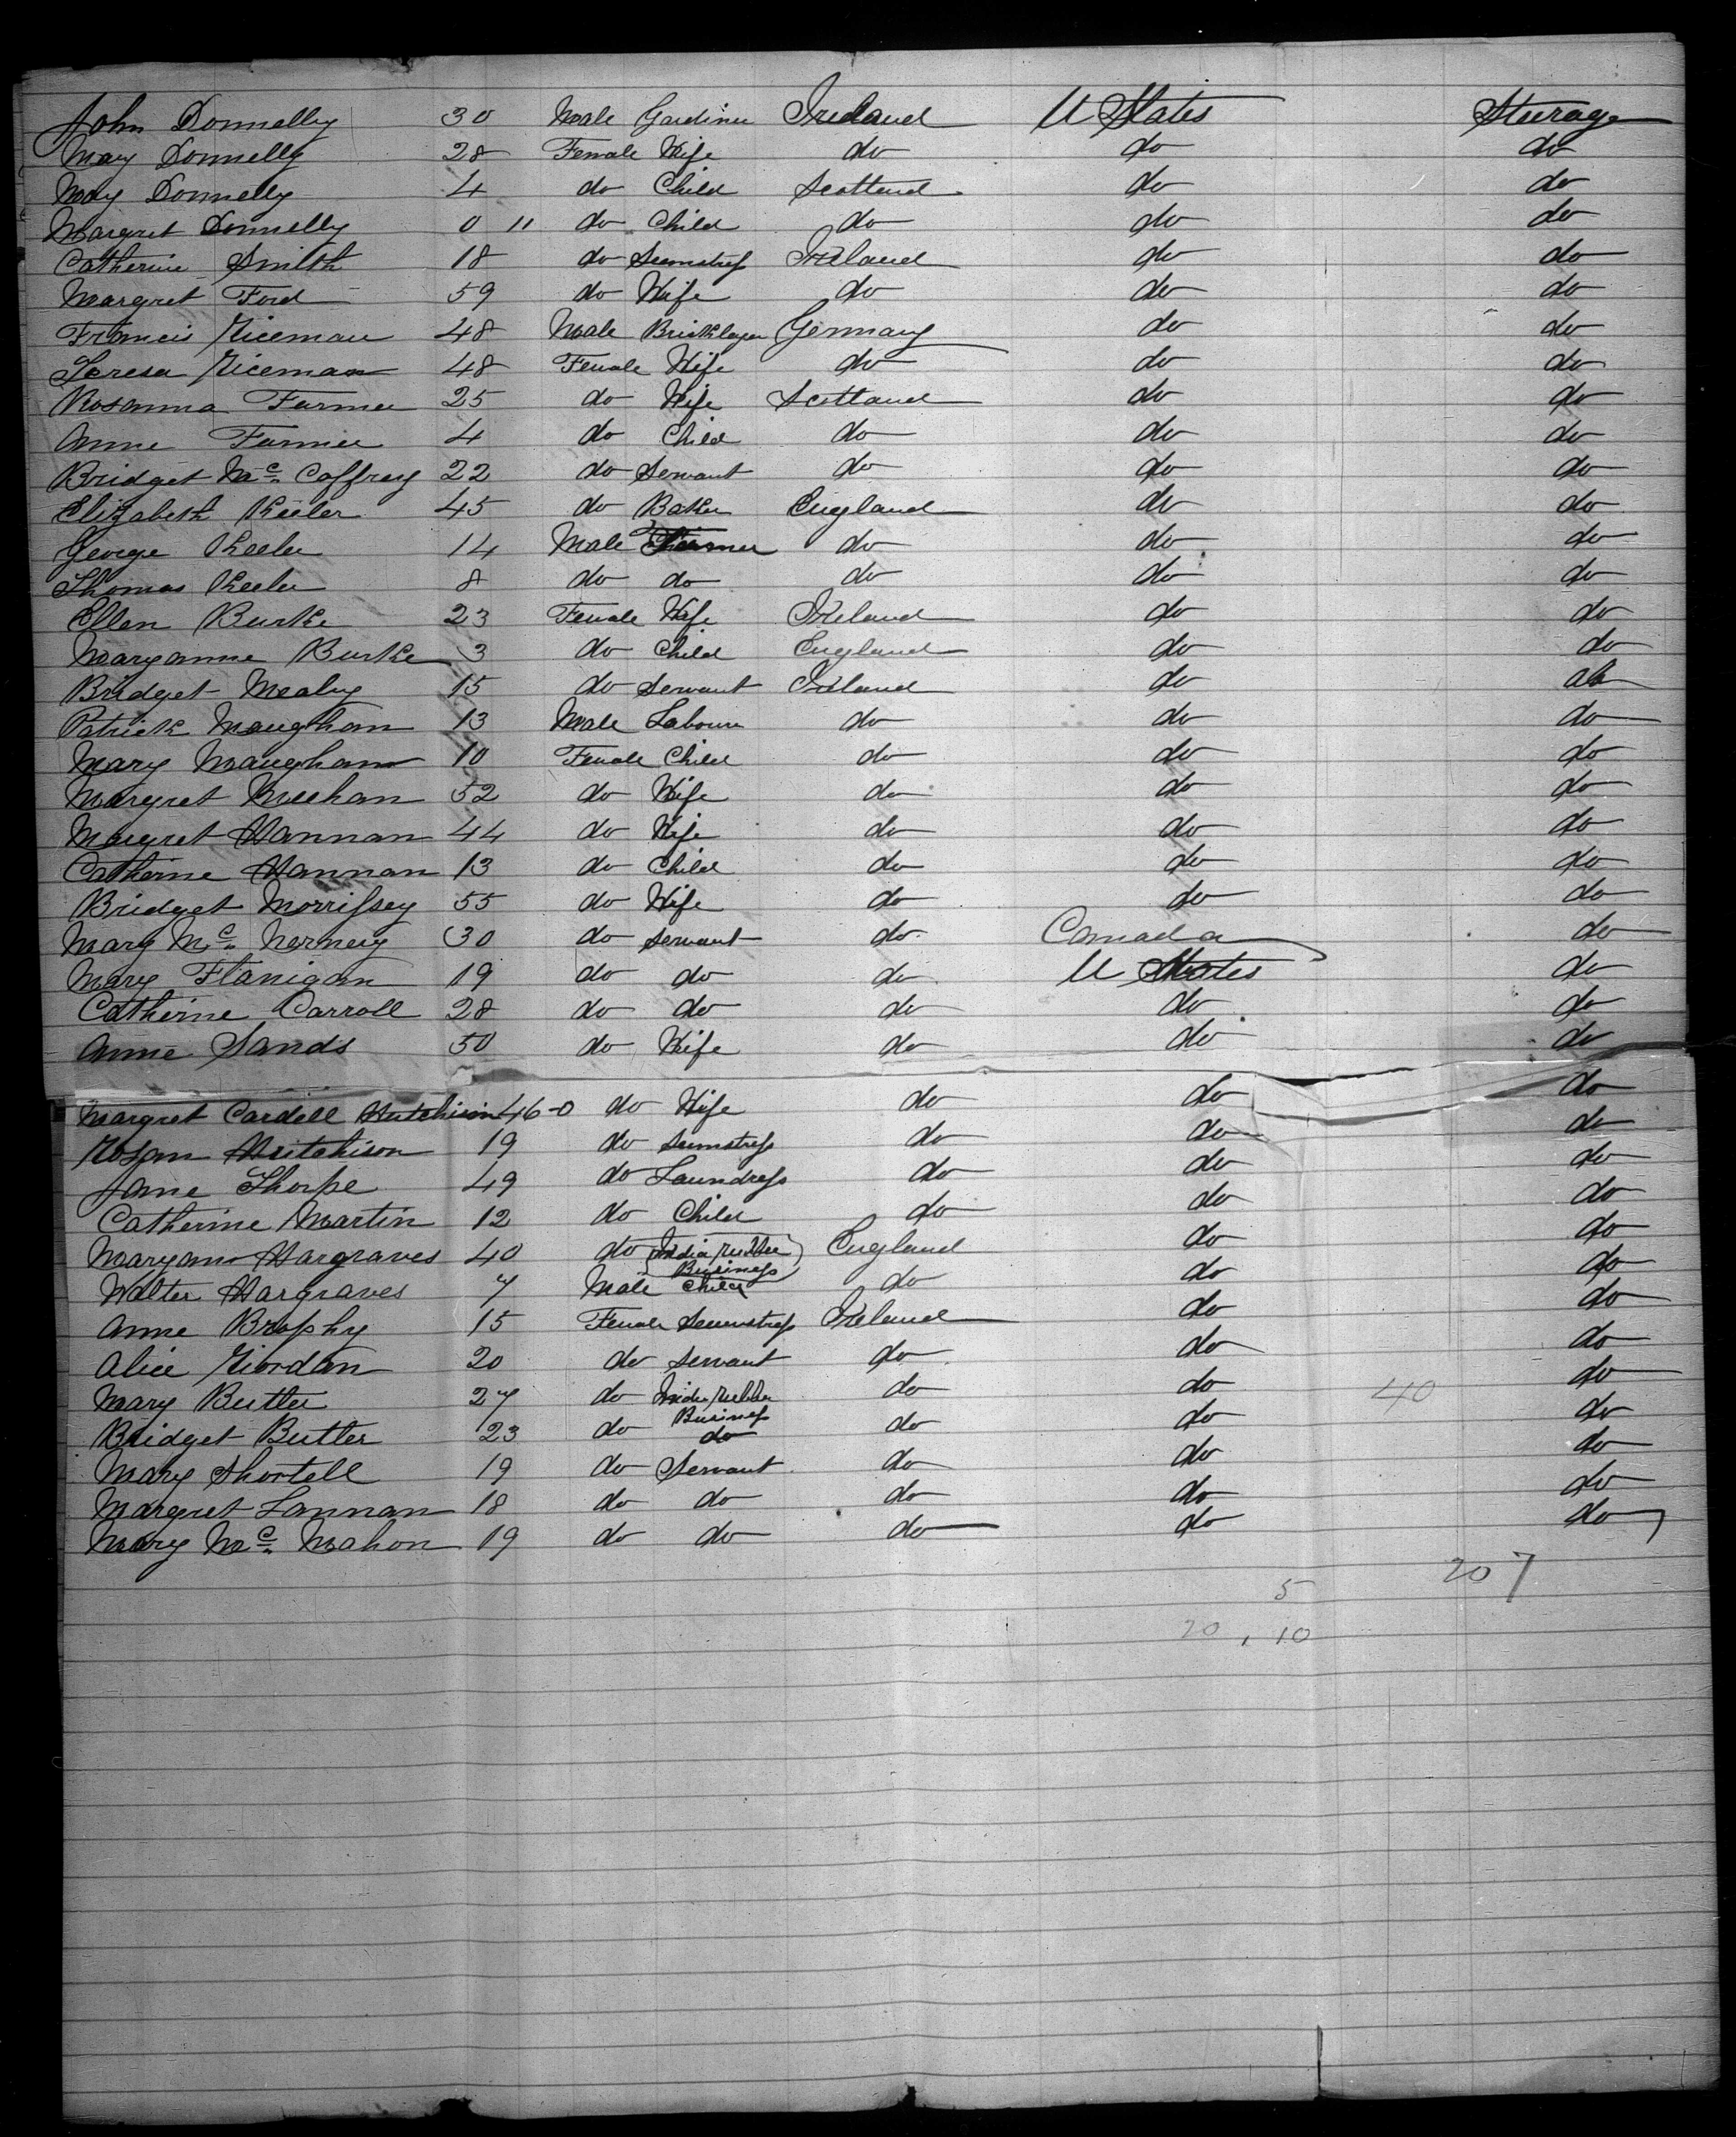 John Donnelly 30 Male Gardiner Ireland U States Steerage
Mary Donnelly 28 Female Wife do do do
May Donnelly 4 do Child Scotland do do
Margret Donnelly 0 11 do Child do do do
Catherine Smith 18 do Seemstress Ireland do do
Margret Ford 59 do Wife do do do
Francis Riceman 48 Male Bricklayer Germany do do
Teresa Riceman 48 Female Wife do do do
Rosanna Farmer 25 do Wife Scotland do do
Anne Farmer 4 do Child do do do
Bridget Mc. Caffrey 22 do Servant do do do
Elizabeth Keeler 45 do Baker England do do
George Keeler 14 Male Farmer do do do
Thomas Keeler 8 do do do do do
Ellen Burke 23 Female Wife Ireland do do
Maryanne Burke 3 do Child England do do
Bridget Mealy 15 do Servant Ireland do do
Patrick Maugham 13 Male Labourer do do do
Mary Maugham 10 Female Child do do do
Margret Meehan 52 do Wife do do do
Margret Hannan 44 do Wife do do do
Catherine Hannan 13 do Child do do do
Bridget Morrissey 55 do Wife do do do
Mary Mc. Nerney 30 do Servant do Canada do
Mary Flanigan 19 do do do U States do
Catherine Carroll 28 do do do do do
Anne Sands 50 do Wife do do do
Margret Cardell Hutchison 46-0 do Wife do do do
Rosan Hutchison 19 do Seemstress do do do
Jane Thorpe 49 do Laundress do do do
Catherine Martin 12 do Child do do do
Maryann Hargraves 40 do (India Rubber Business) England do do
Walter Hargraves 7 Male Child do do do
Anne Brophy 15 Female Seemstress Ireland do do
Alice Riordan 20 do Servant do do do
Mary Butler 27 do India Rubber Business do do 40 do
Bridget Butler 23 do do do do do
Mary Shortell 19 do Servant do do do
Margret Lannan 18 do do do do do
Mary Mc. Mahon 19 do do do do do
207
5
20, 10